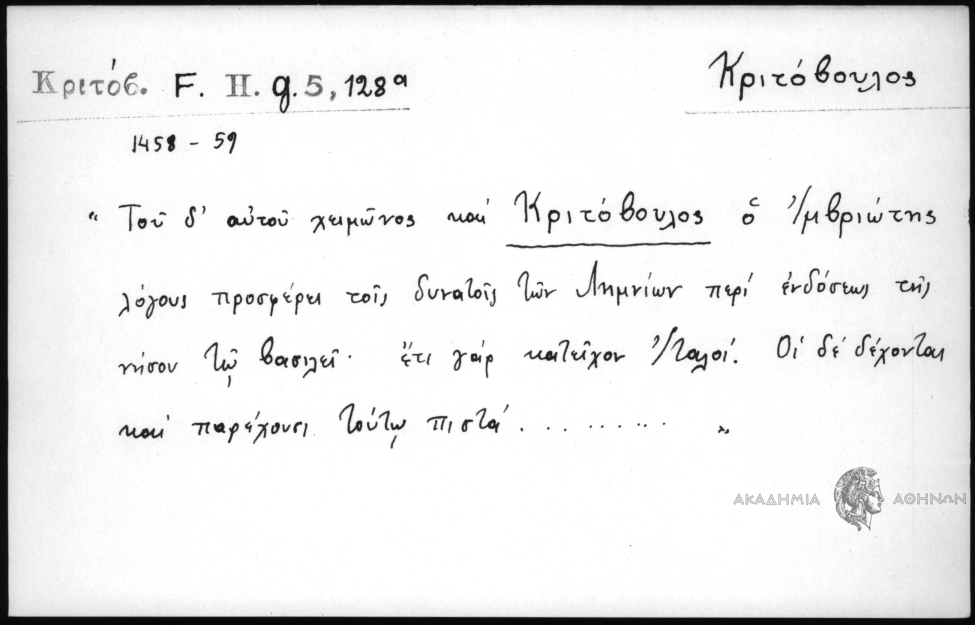 Κριτόβ. F. H. g. 5, 128α
Κριτόβουλος
1458 - 59
“ Τοῦ δ' αὐτοῦ χειμῶνος καί Κριτόβουλος ὁ Ἰμβριώτης
λόγους προσφέρει τοῖς δυνατοῖς τῶν Λημνίων περί ἐνδόσεως τῆς
νήσου τῷ βασιλεῖ· ἔτι γάρ κατεῖχον Ἰταλοί. Οἱ δέ δέχονται
καί παρέχουσι τούτῳ πιστά . . . . . . . . . . „
ΑΚΑΔΗΜΙΑ ΑΘΗΝΩΝ